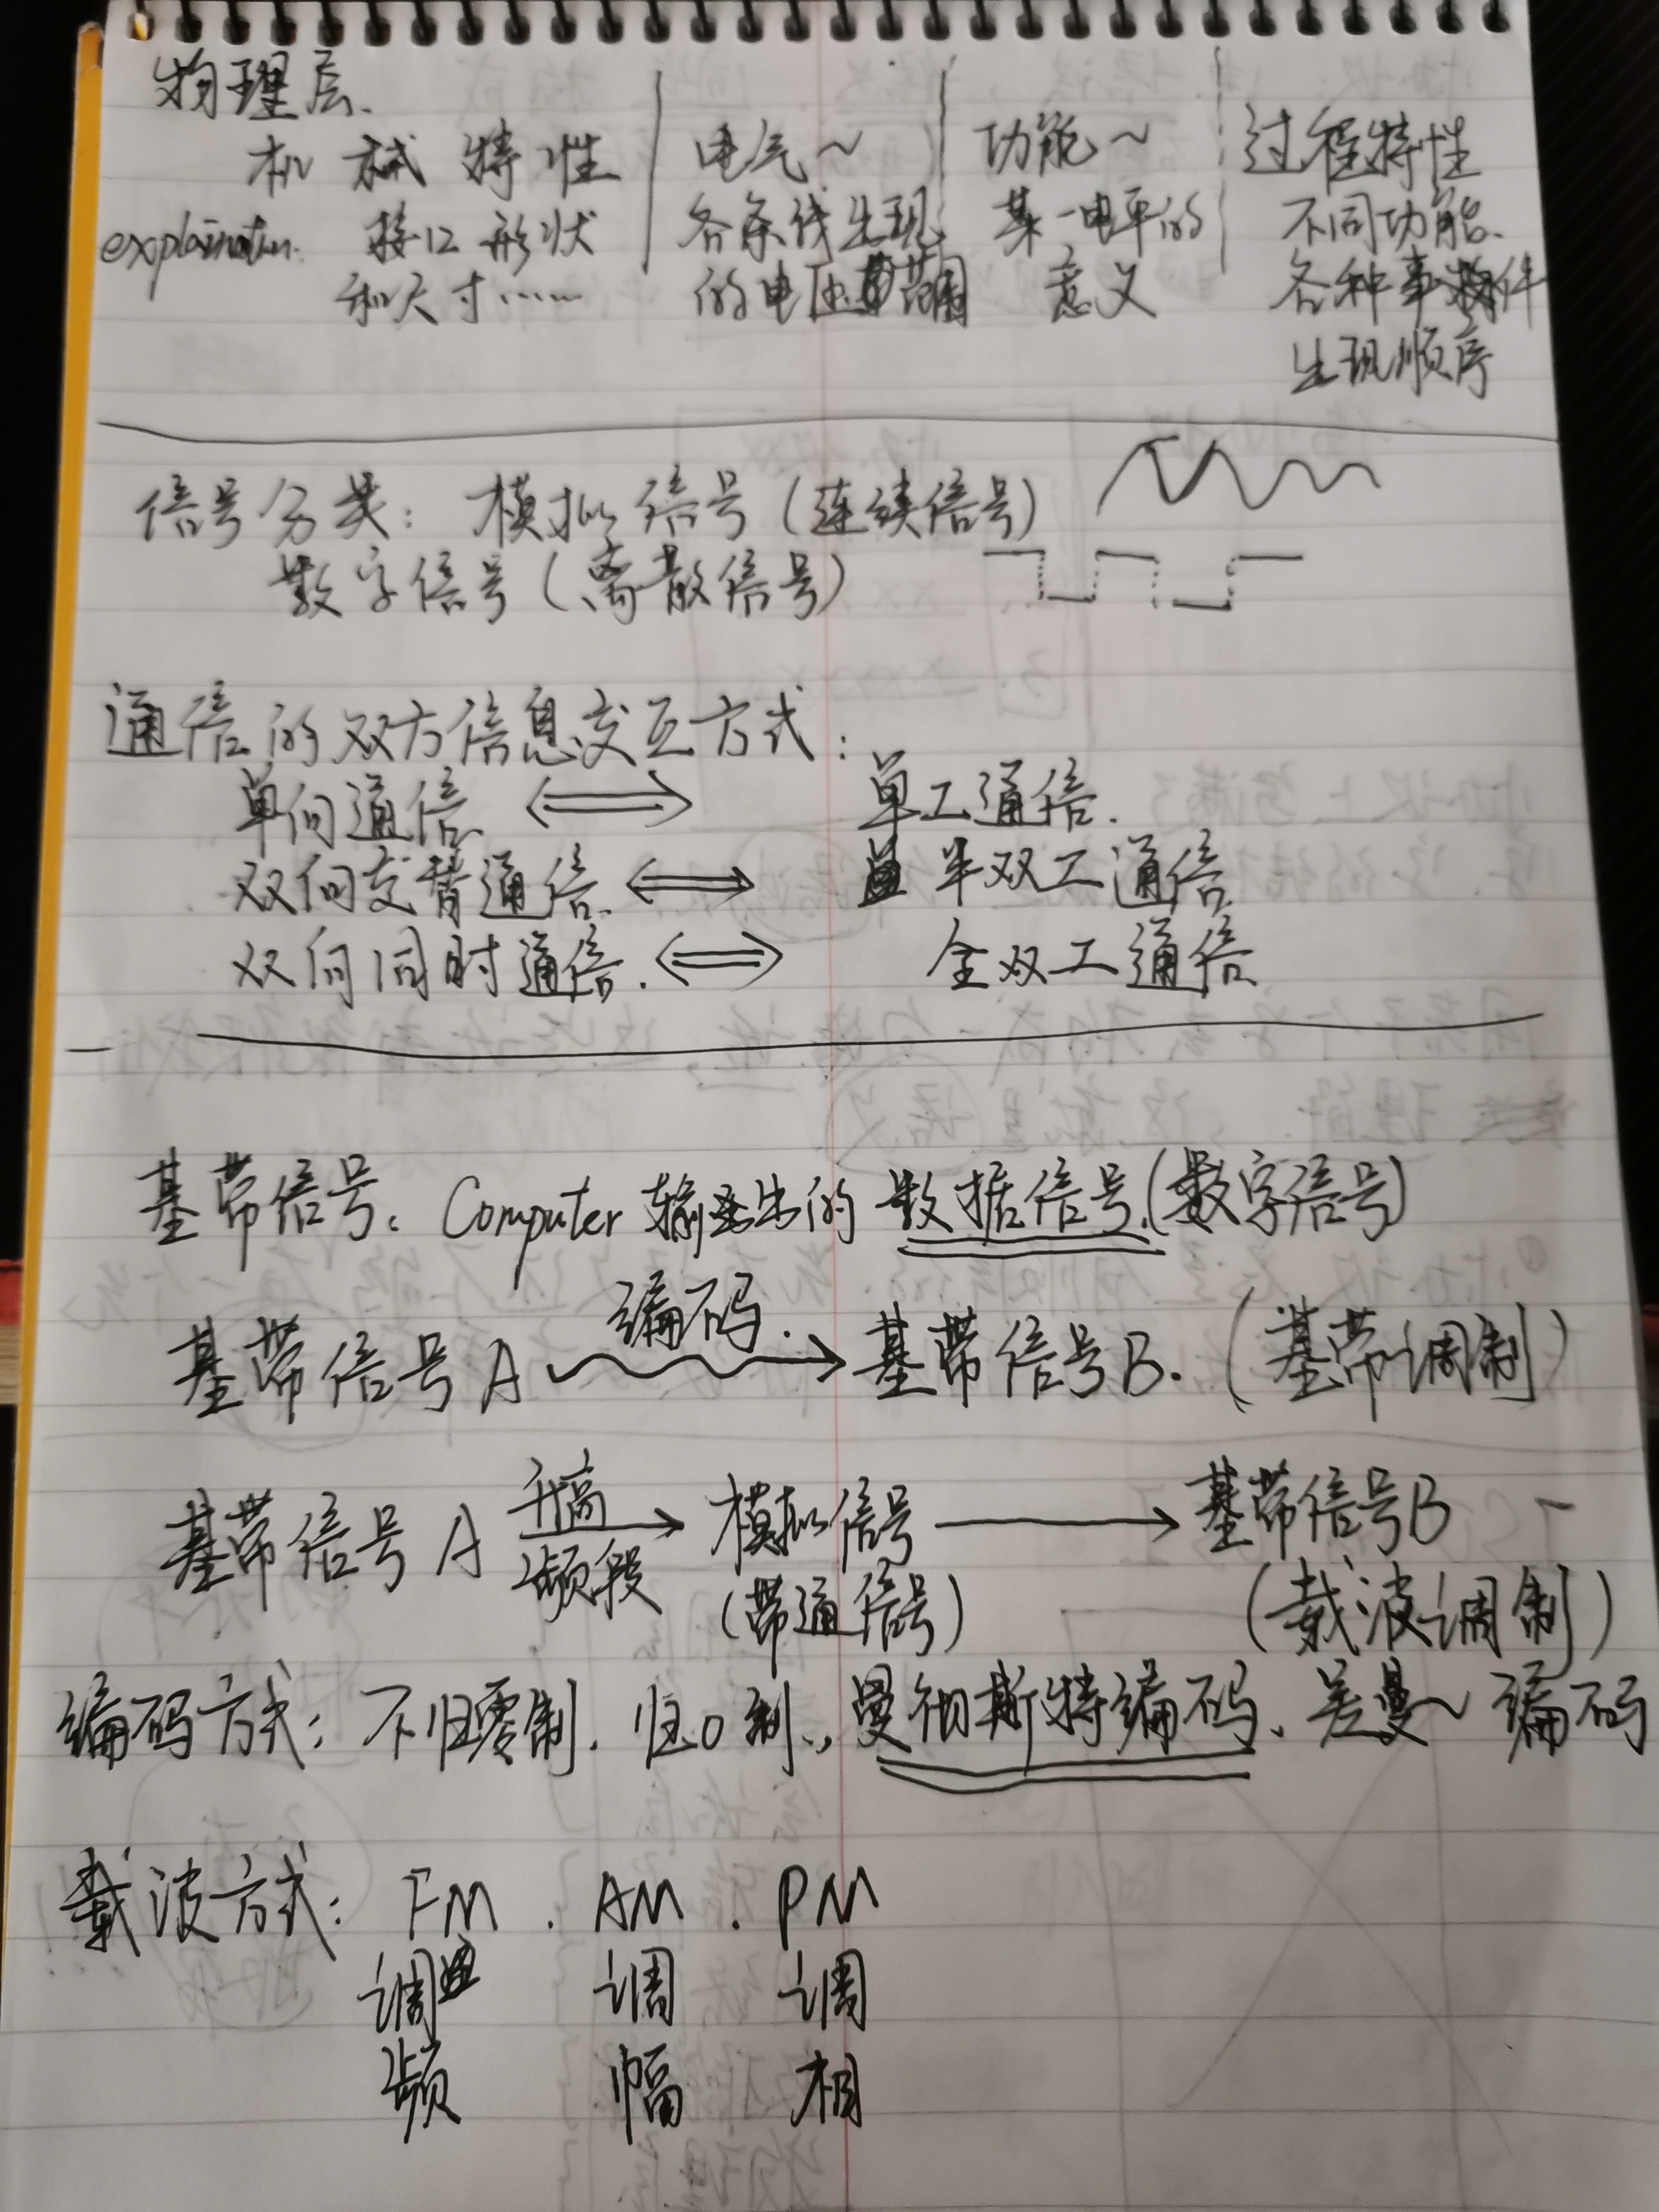 物理层.
机械特性 电气~ 功能~ 过程特性
explaination. 接口形状 各条线出现 某一电平的 不同功能.
和尺寸…… 的电压范围 意义 各种事件
出现顺序
信号分类: 模拟信号(连续信号)
数字信号(离散信号)
通信的双方信息交互方式:
单向通信. 单工通信.
双向交替通信. 半双工通信.
双向同时通信. 全双工通信
基带信号: Computer 输出的数据信号.(数字信号)
编码.
基带信号A 基带信号B. (基带调制)
升高
基带信号A 模拟信号 基带信号B
频段 (带通信号) (载波调制)
编码方式: 不归零制. 归0制., 曼彻斯特编码、差曼~编码
载波方式: FM . AM . PM
调 调 调
频 幅 相